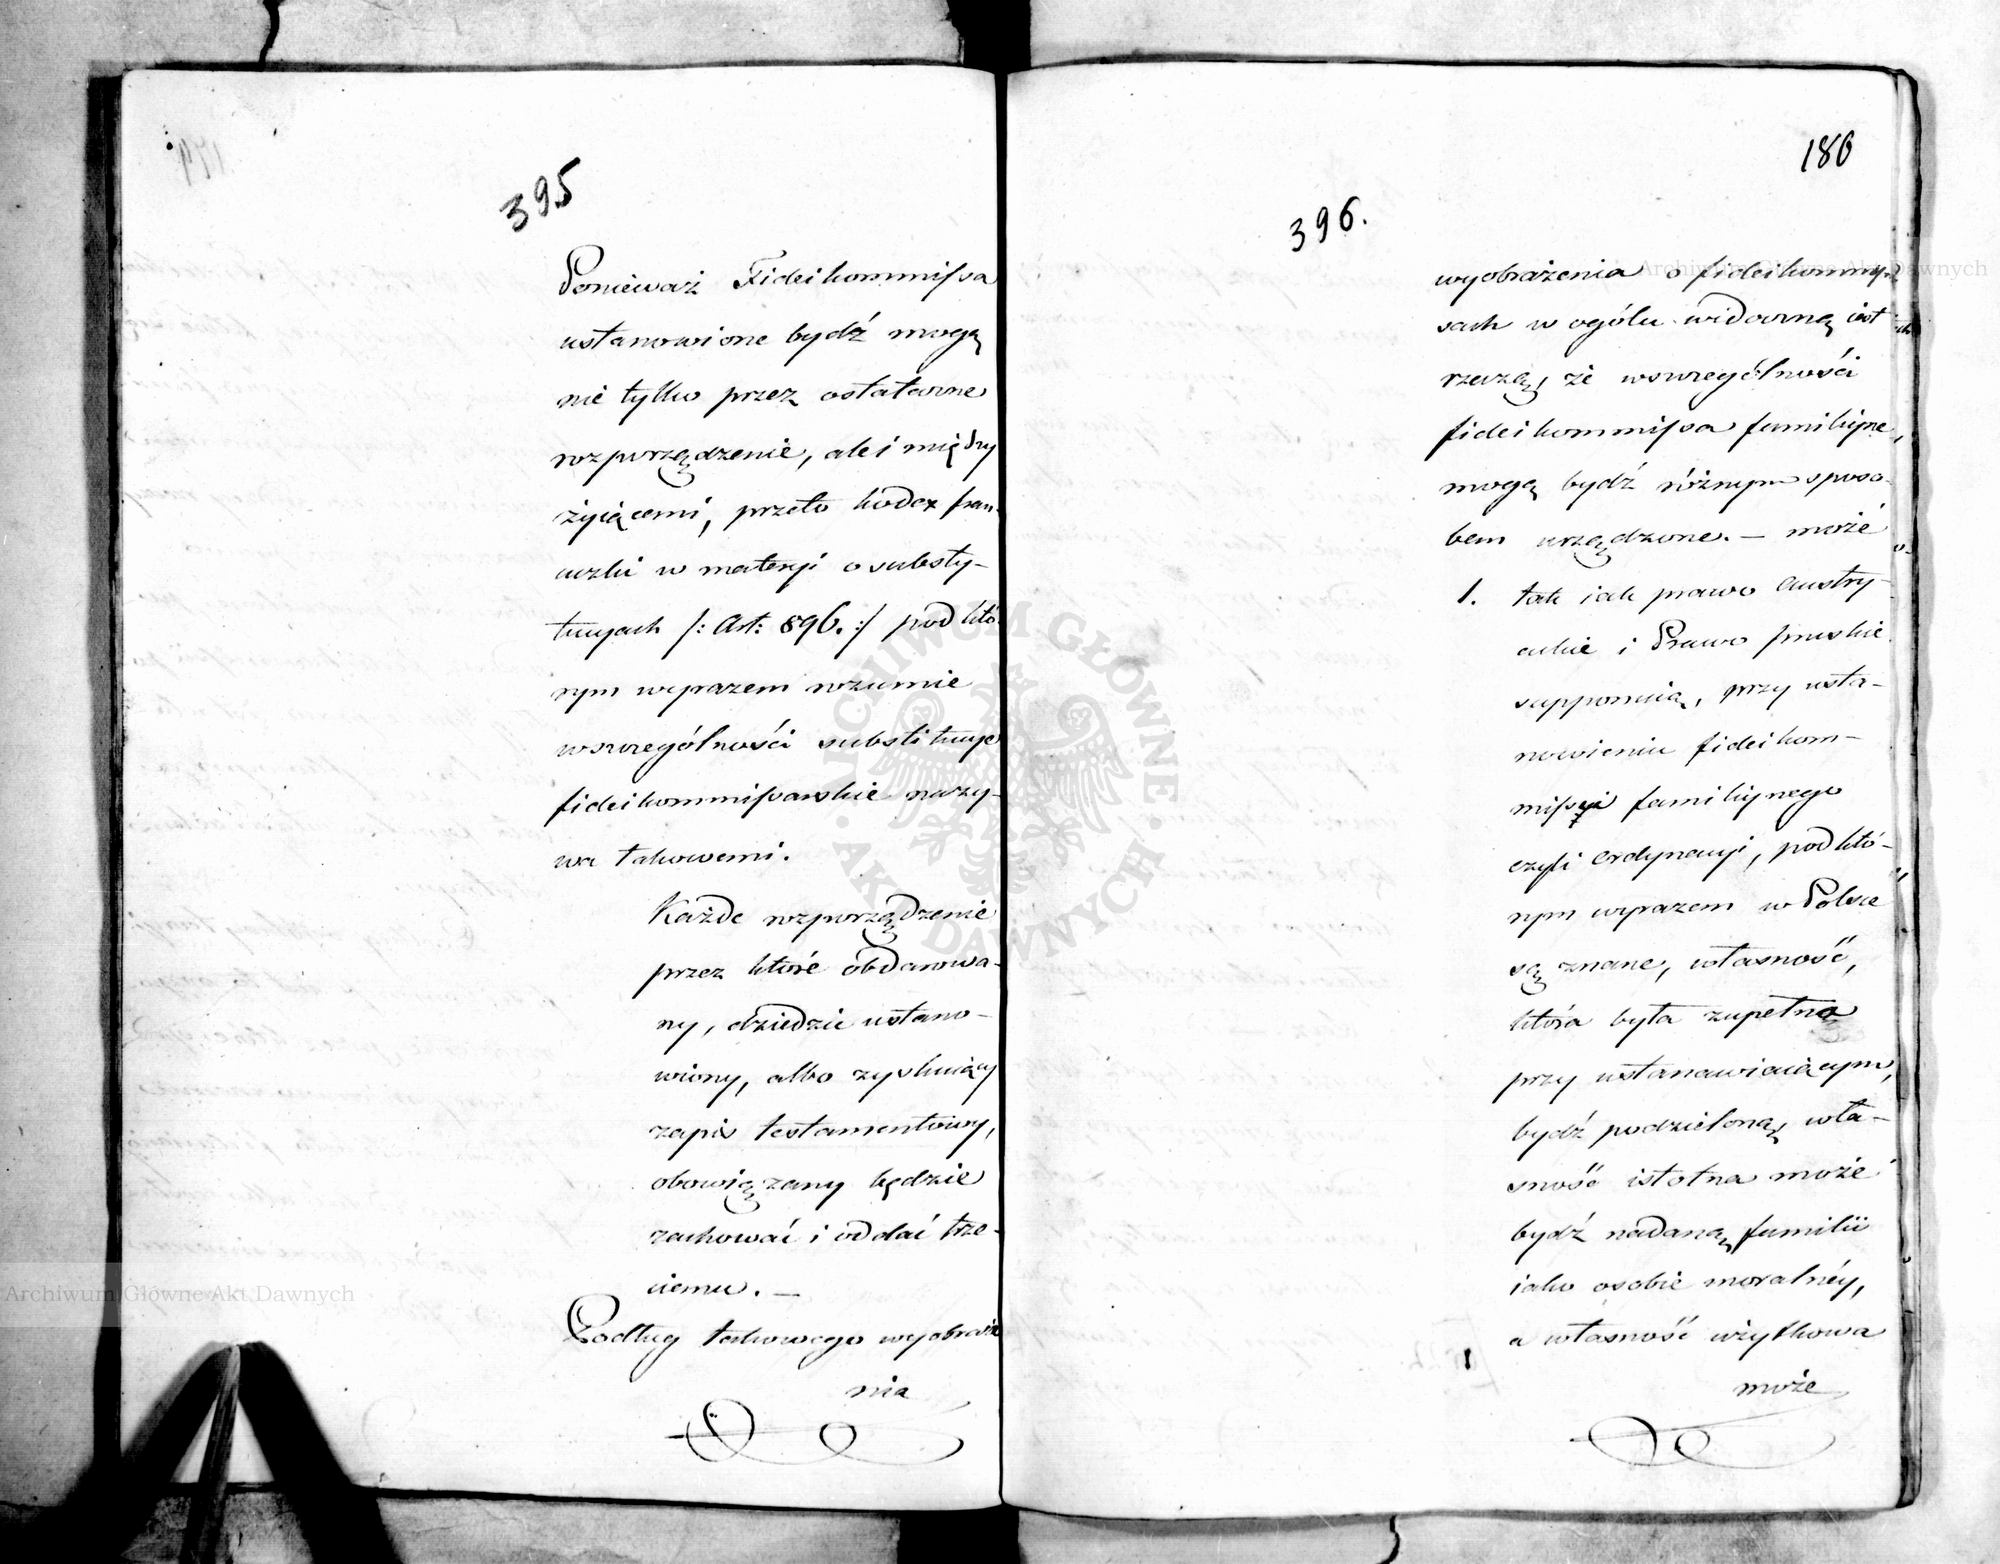 395
Ponieważ Fideikommissa
ustanowione bydź mogą
nie tylko przez ostatawne
rozporządzenie, ale i między
żyiącemi, przeto kodex fran-
cuzki w materyi o substy-
tucyach /: Art: 896. :/ pod któ-
rym wyrazem rozumie
wszczególności substitucye
fideikommissarskie nazy-
wa takowemi.
Każde rozporządzenie
przez które obdarowa-
ny, dziedzic ustano-
wiony, albo zyskuiący
zapis testamentowy,
obowiązany będzie
zachować i oddać trze-
ciemu. —
Podług takowego wyobraże
nia
180
396.
wyobrażenia o fideikommis-
sach w ogólu widoczną iest
rzeczą, że wszczególności
fideikommissa familiyne,
mogą bydź różnym sposo-
bem urządzone. — może
1. tak iak prawo Austry-
ackie i Prawo pruskie
supponuią, przy usta-
nowieniu fideikom-
missyi familiynego
czyli Ordynacyi, pod któ-
rym wyrazem w Polsce
są znane, własność,
która była zupełna
przy ustanawiaiącym,
bydź podzieloną, wła-
sność istotna może
bydź nadaną familii
iako osobie moralnéy,
a własność użytkowa
może
Archiwum Główne Akt Dawnych
Archiwum Główne Akt Dawnych
ARCHIWUM GŁÓWNE
AKT DAWNYCH